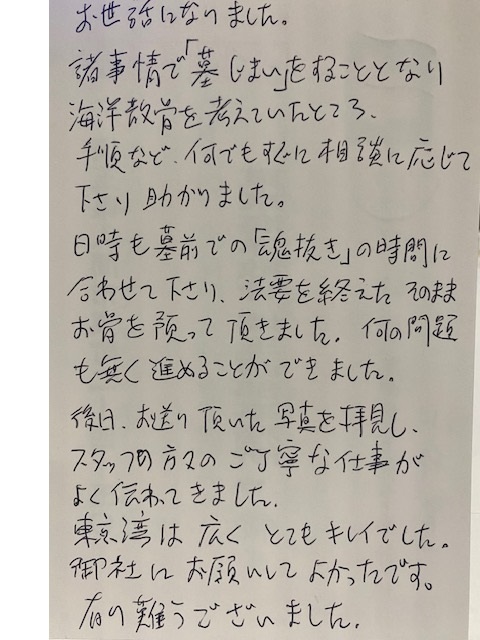 お世話になりました。
諸事情で「墓じまい」をすることとなり
海洋散骨を考えていたところ、
手順など、何でもすぐに相談に応じて
下さり助かりました。
日時も墓前での「魂抜き」の時間に
合わせて下さり、法要を終えたそのまま
お骨を預って頂きました。何の問題
も無く進めることができました。
後日、お送り頂いた写真を拝見し、
スタッフの方々のご丁寧な仕事が
よく伝わってきました。
東京湾は広くとてもキレイでした。
御社にお願いしてよかったです。
有り難うございました。